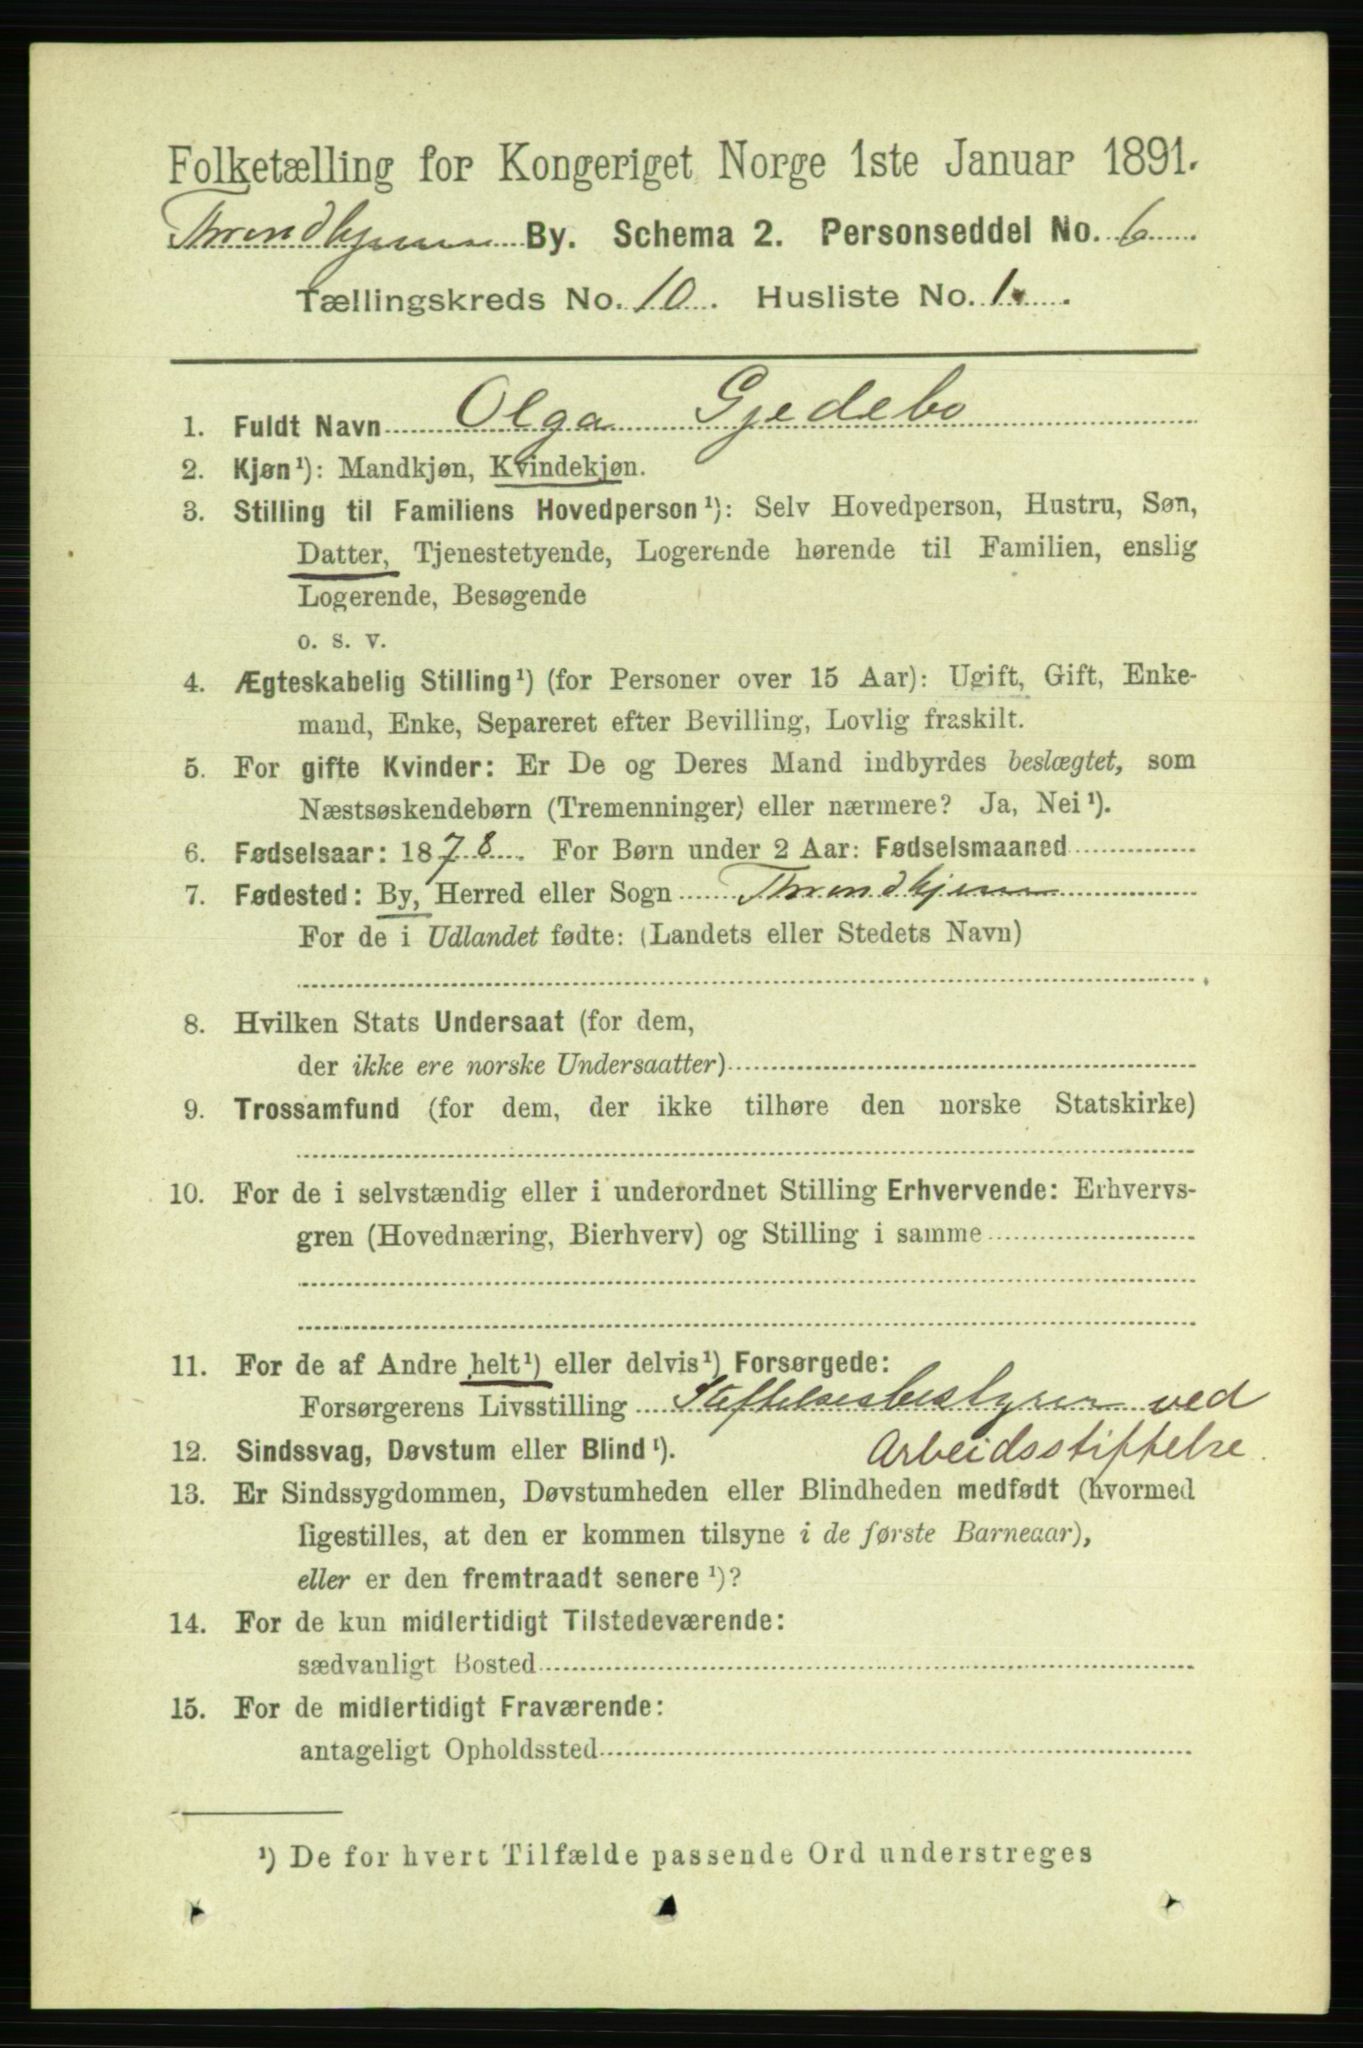 Folketælling for Kongeriget Norge 1ste Januar 1891.
Throndhjems By. Schema 2. Personseddel No. 6
Tællingskreds No. 10. Husliste No. 1.
1. Fuldt Navn Olga Gjedebo
2. Kjøn¹): Mandkjøn, Kvindekjøn.
3. Stilling til Familiens Hovedperson¹): Selv Hovedperson, Hustru, Søn,
Datter, Tjenestetyende, Logerende hørende til Familien, enslig
Logerende, Besøgende
o. s. v.
4. Ægteskabelig Stilling¹) (for Personer over 15 Aar): Ugift, Gift, Enke-
mand, Enke, Separeret efter Bevilling, Lovlig fraskilt.
5. For gifte Kvinder: Er De og Deres Mand indbyrdes beslægtet, som
Næstsøskendebørn (Tremenninger) eller nærmere? Ja, Nei¹).
6. Fødselsaar: 1878. For Børn under 2 Aar: Fødselsmaaned
7. Fødested: By, Herred eller Sogn Throndhjem
For de i Udlandet fødte: (Landets eller Stedets Navn)
8. Hvilken Stats Undersaat (for dem,
der ikke ere norske Undersaatter)
9. Trossamfund (for dem, der ikke tilhøre den norske Statskirke)
10. For de i selvstændig eller i underordnet Stilling Erhvervende: Erhvervs-
gren (Hovednæring, Bierhverv) og Stilling i samme
11. For de af Andre helt¹) eller delvis¹) Forsørgede:
Forsørgerens Livsstilling Stiftelsesbestyrer ved
12. Sindssvag, Døvstum eller Blind¹). Arbeidsstiftelse.
13. Er Sindssygdommen, Døvstumheden eller Blindheden medfødt (hvormed
ligestilles, at den er kommen tilsyne i de første Barneaar),
eller er den fremtraadt senere¹)?
14. For de kun midlertidigt Tilstedeværende:
sædvanligt Bosted
15. For de midlertidigt Fraværende:
antageligt Opholdssted
¹) De for hvert Tilfælde passende Ord understreges